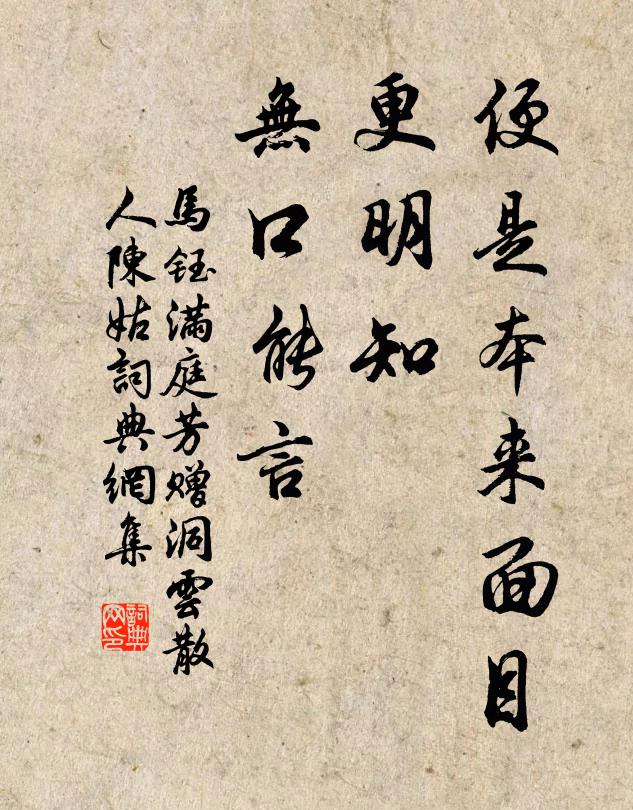 便是本来面目
更明知
無口能言
馬鈺满庭芳赠洞雲散
人陳姑詞典網集
詞典
网印